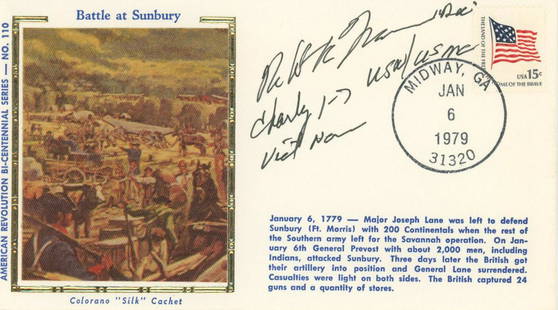 Battle at Sunbury
AMERICAN REVOLUTION BI-CENTENNIAL SERIES — NO. 110
"Doc"
USN/USMC
Charly 1-7
Viet Nam
THE LAND OF THE FREE
USA 15c
HOME OF THE BRAVE
MIDWAY, GA
JAN
6
1979
31320
January 6, 1779 — Major Joseph Lane was left to defend
Sunbury (Ft. Morris) with 200 Continentals when the rest
of the Southern army left for the Savannah operation. On Jan-
uary 6th General Prevost with about 2,000 men, including
Indians, attacked Sunbury. Three days later the British got
their artillery into position and General Lane surrendered.
Casualties were light on both sides. The British captured 24
guns and a quantity of stores.
Colorano "Silk" Cachet